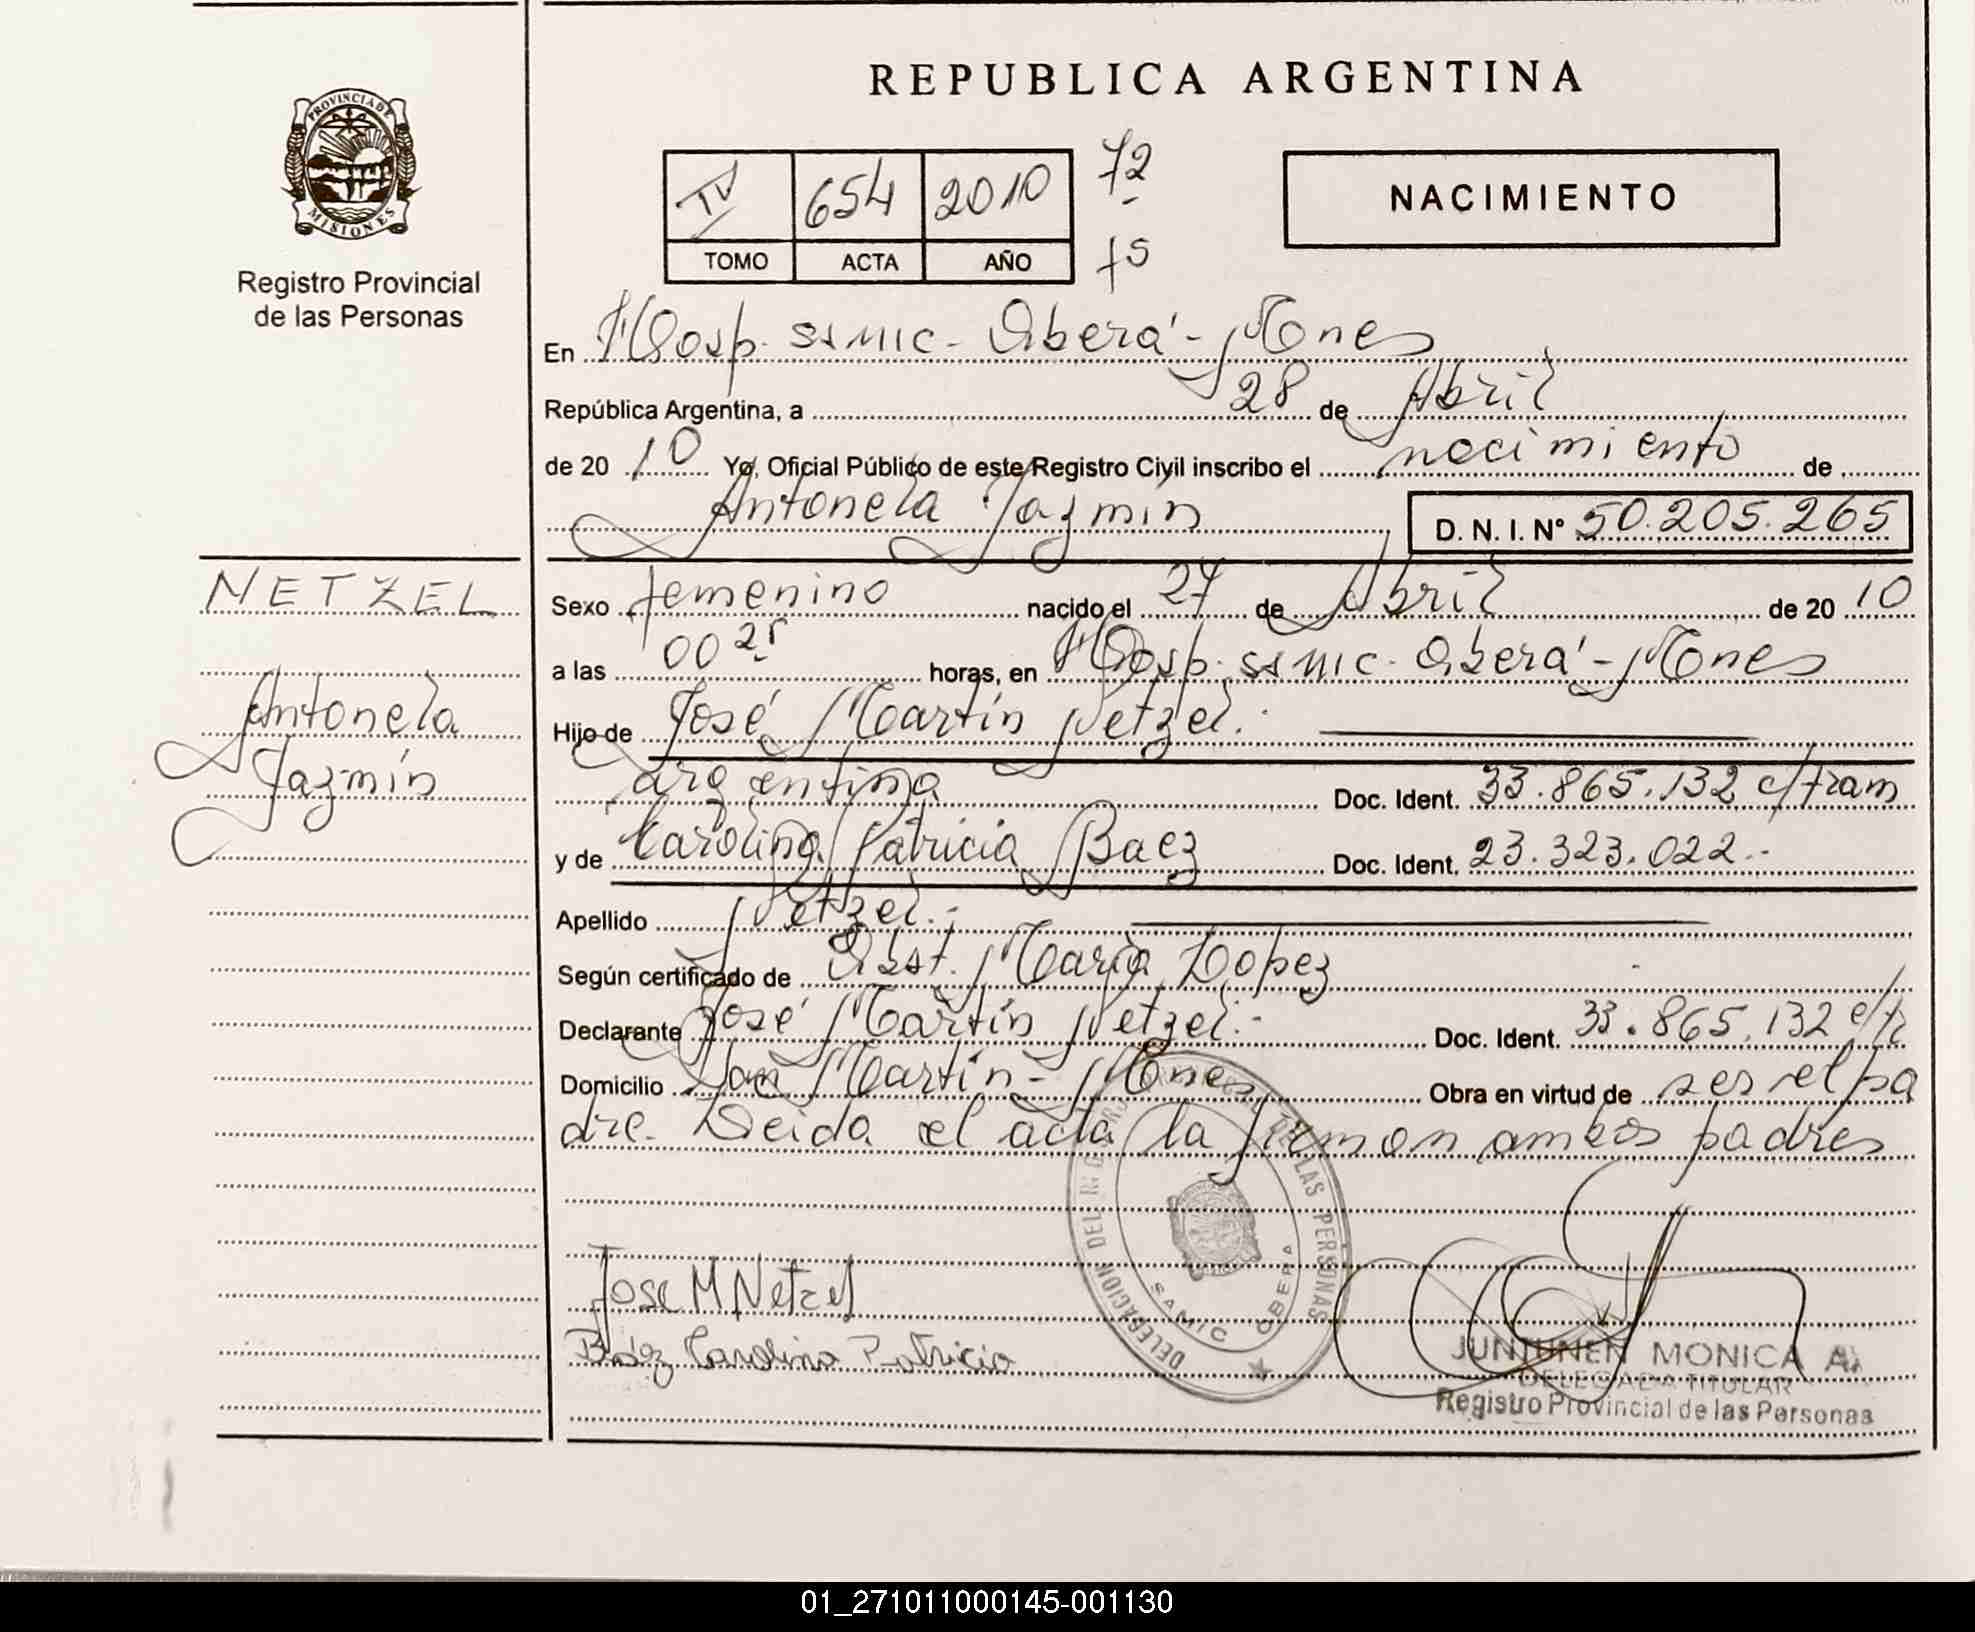 REPUBLICA ARGENTINA
PROVINCIA DE
MISIONES
Registro Provincial
de las Personas
IV 654 2010 72
TOMO ACTA AÑO 75
NACIMIENTO
En Hosp. SAMIC - Oberá - Mones
República Argentina, a 28 de Abril
de 20 10 Yo, Oficial Público de este Registro Civil inscribo el nacimiento de
Antonela Jazmín D. N. I. Nº 50.205.265
NETZEL
Antonela
Jazmín
Sexo femenino nacido el 27 de Abril de 20 10
a las 00 horas, en Hosp. SAMIC - Oberá - Mones
Hijo de José Martín Netzel.
argentina Doc. Ident. 33.865.132 c/tram
y de Carolina Patricia Baez Doc. Ident. 23.323.022.-
Apellido Netzel.-
Según certificado de Obst. María Lopez
Declarante José Martín Netzel.- Doc. Ident. 33.865.132 c/t
Domicilio San Martín - Mones Obra en virtud de ser el pa
dre. Leida el acta la firman ambos padres
DELEGACION DEL DE LAS PERSONAS
SAMIC OBERA
Jose M Netzel
Baéz Carolina Patricia
JUNTUNEN MONICA A.
DELEGADA TITULAR
Registro Provincial de las Personas
01_271011000145-001130